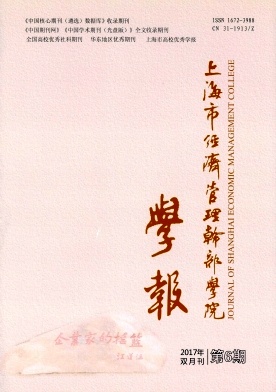 《中国核心期刊（遴选）数据库》收录期刊
《中国期刊网》《中国学术期刊（光盘版）》全文收录期刊
全国高校优秀社科期刊 华东地区优秀期刊 上海市高校优秀学报
ISSN 1672-3988
CN 31-1913/Z
上海市经济管理幹部学院
JOURNAL OF SHANGHAI ECONOMIC MANAGEMENT COLLEGE
學報
企業家的摇篮
2017年
双月刊
第6期